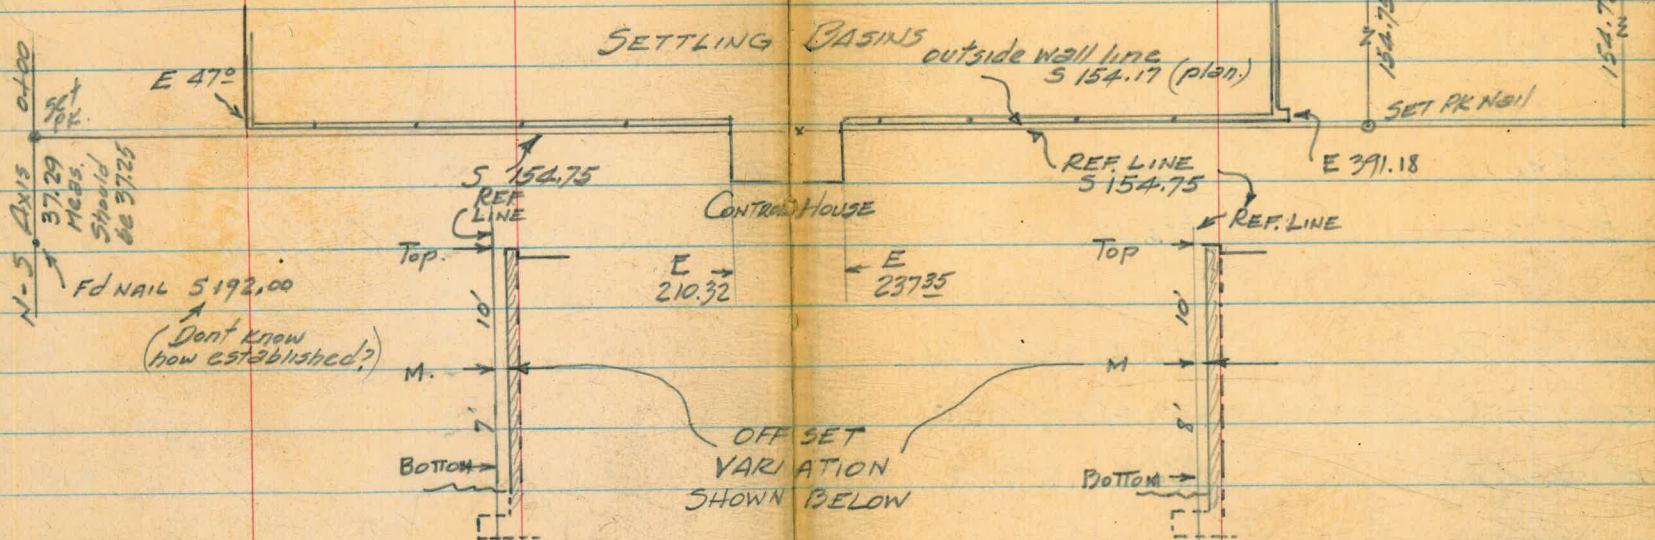 SETTLING BASINS
outside wall line
S 154.17 (plan.)
E 47º
0+00
Set
PK.
N-S AXIS
37.29
Meas.
Should
be 37.25
Fd NAIL S 192.00
(Dont know
how established?)
S 154.75
REF
LINE
CONTROL HOUSE
REF. LINE
S 154.75
E 391.18
SET PK Nail
N
154.75
N
REF. LINE
Top.
10'
M.
7'
BOTTOM
E
210.32
E
237.35
OFFSET
VARIATION
SHOWN BELOW
Top
10'
M
8'
BOTTOM